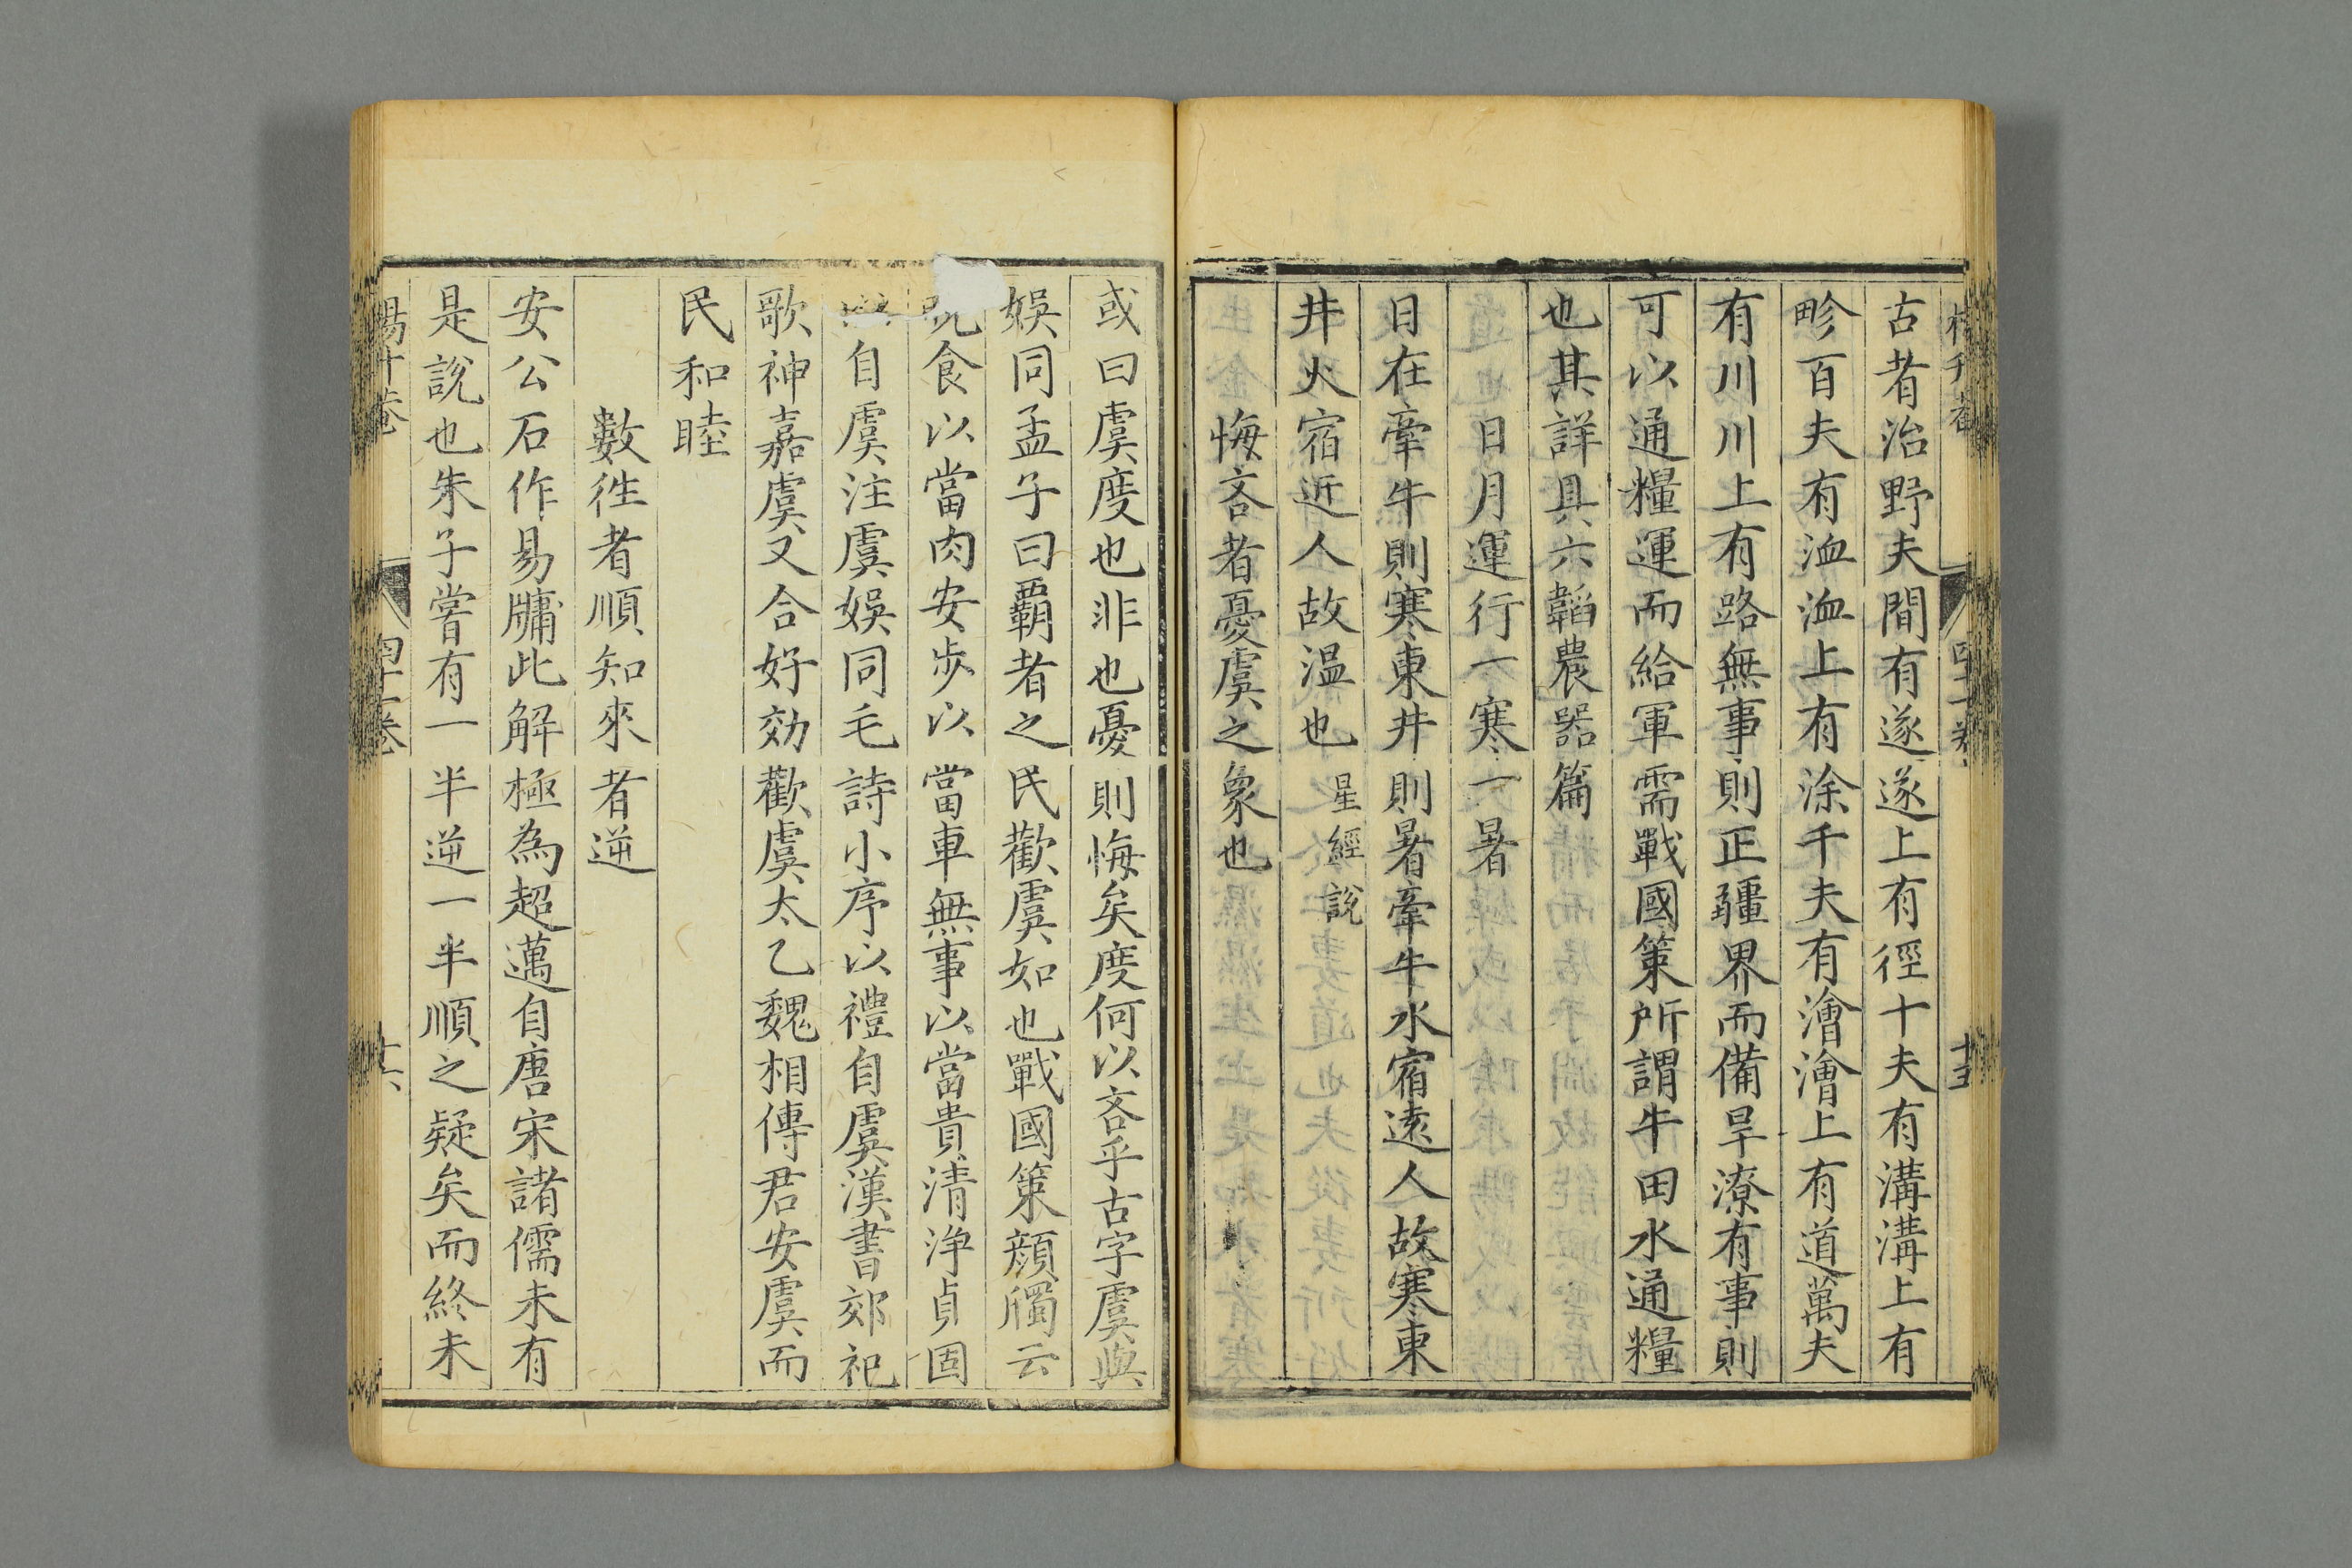 古者治野夫間有遂遂上有徑十夫有溝溝上有
畛百夫有洫洫上有涂千夫有澮澮上有道萬夫
有川川上有路無事則正疆界而備旱潦有事則
可以通糧運而給軍需戰國策所謂牛田水通糧
也其詳具六韜農器篇
日月運行一寒一暑
日在牽牛則寒東井則暑牽牛水宿遠人故寒東
井火宿近人故温也星經說
悔吝者憂虞之象也
或曰虞度也非也憂則悔矣度何以吝乎古字虞與
娱同孟子曰覇者之民歡虞如也戰國策顔斶云
食以當肉安步以當車無事以當貴清浄貞固
自虞注虞娱同毛詩小序以禮自虞漢書郊祀
歌神嘉虞又合好効歡虞太乙魏相傳君安虞而
民和睦
數徃者順知來者逆
安公石作易牗此解極為超邁自唐宋諸儒未有
是說也朱子嘗有一半逆一半順之疑矣而終未